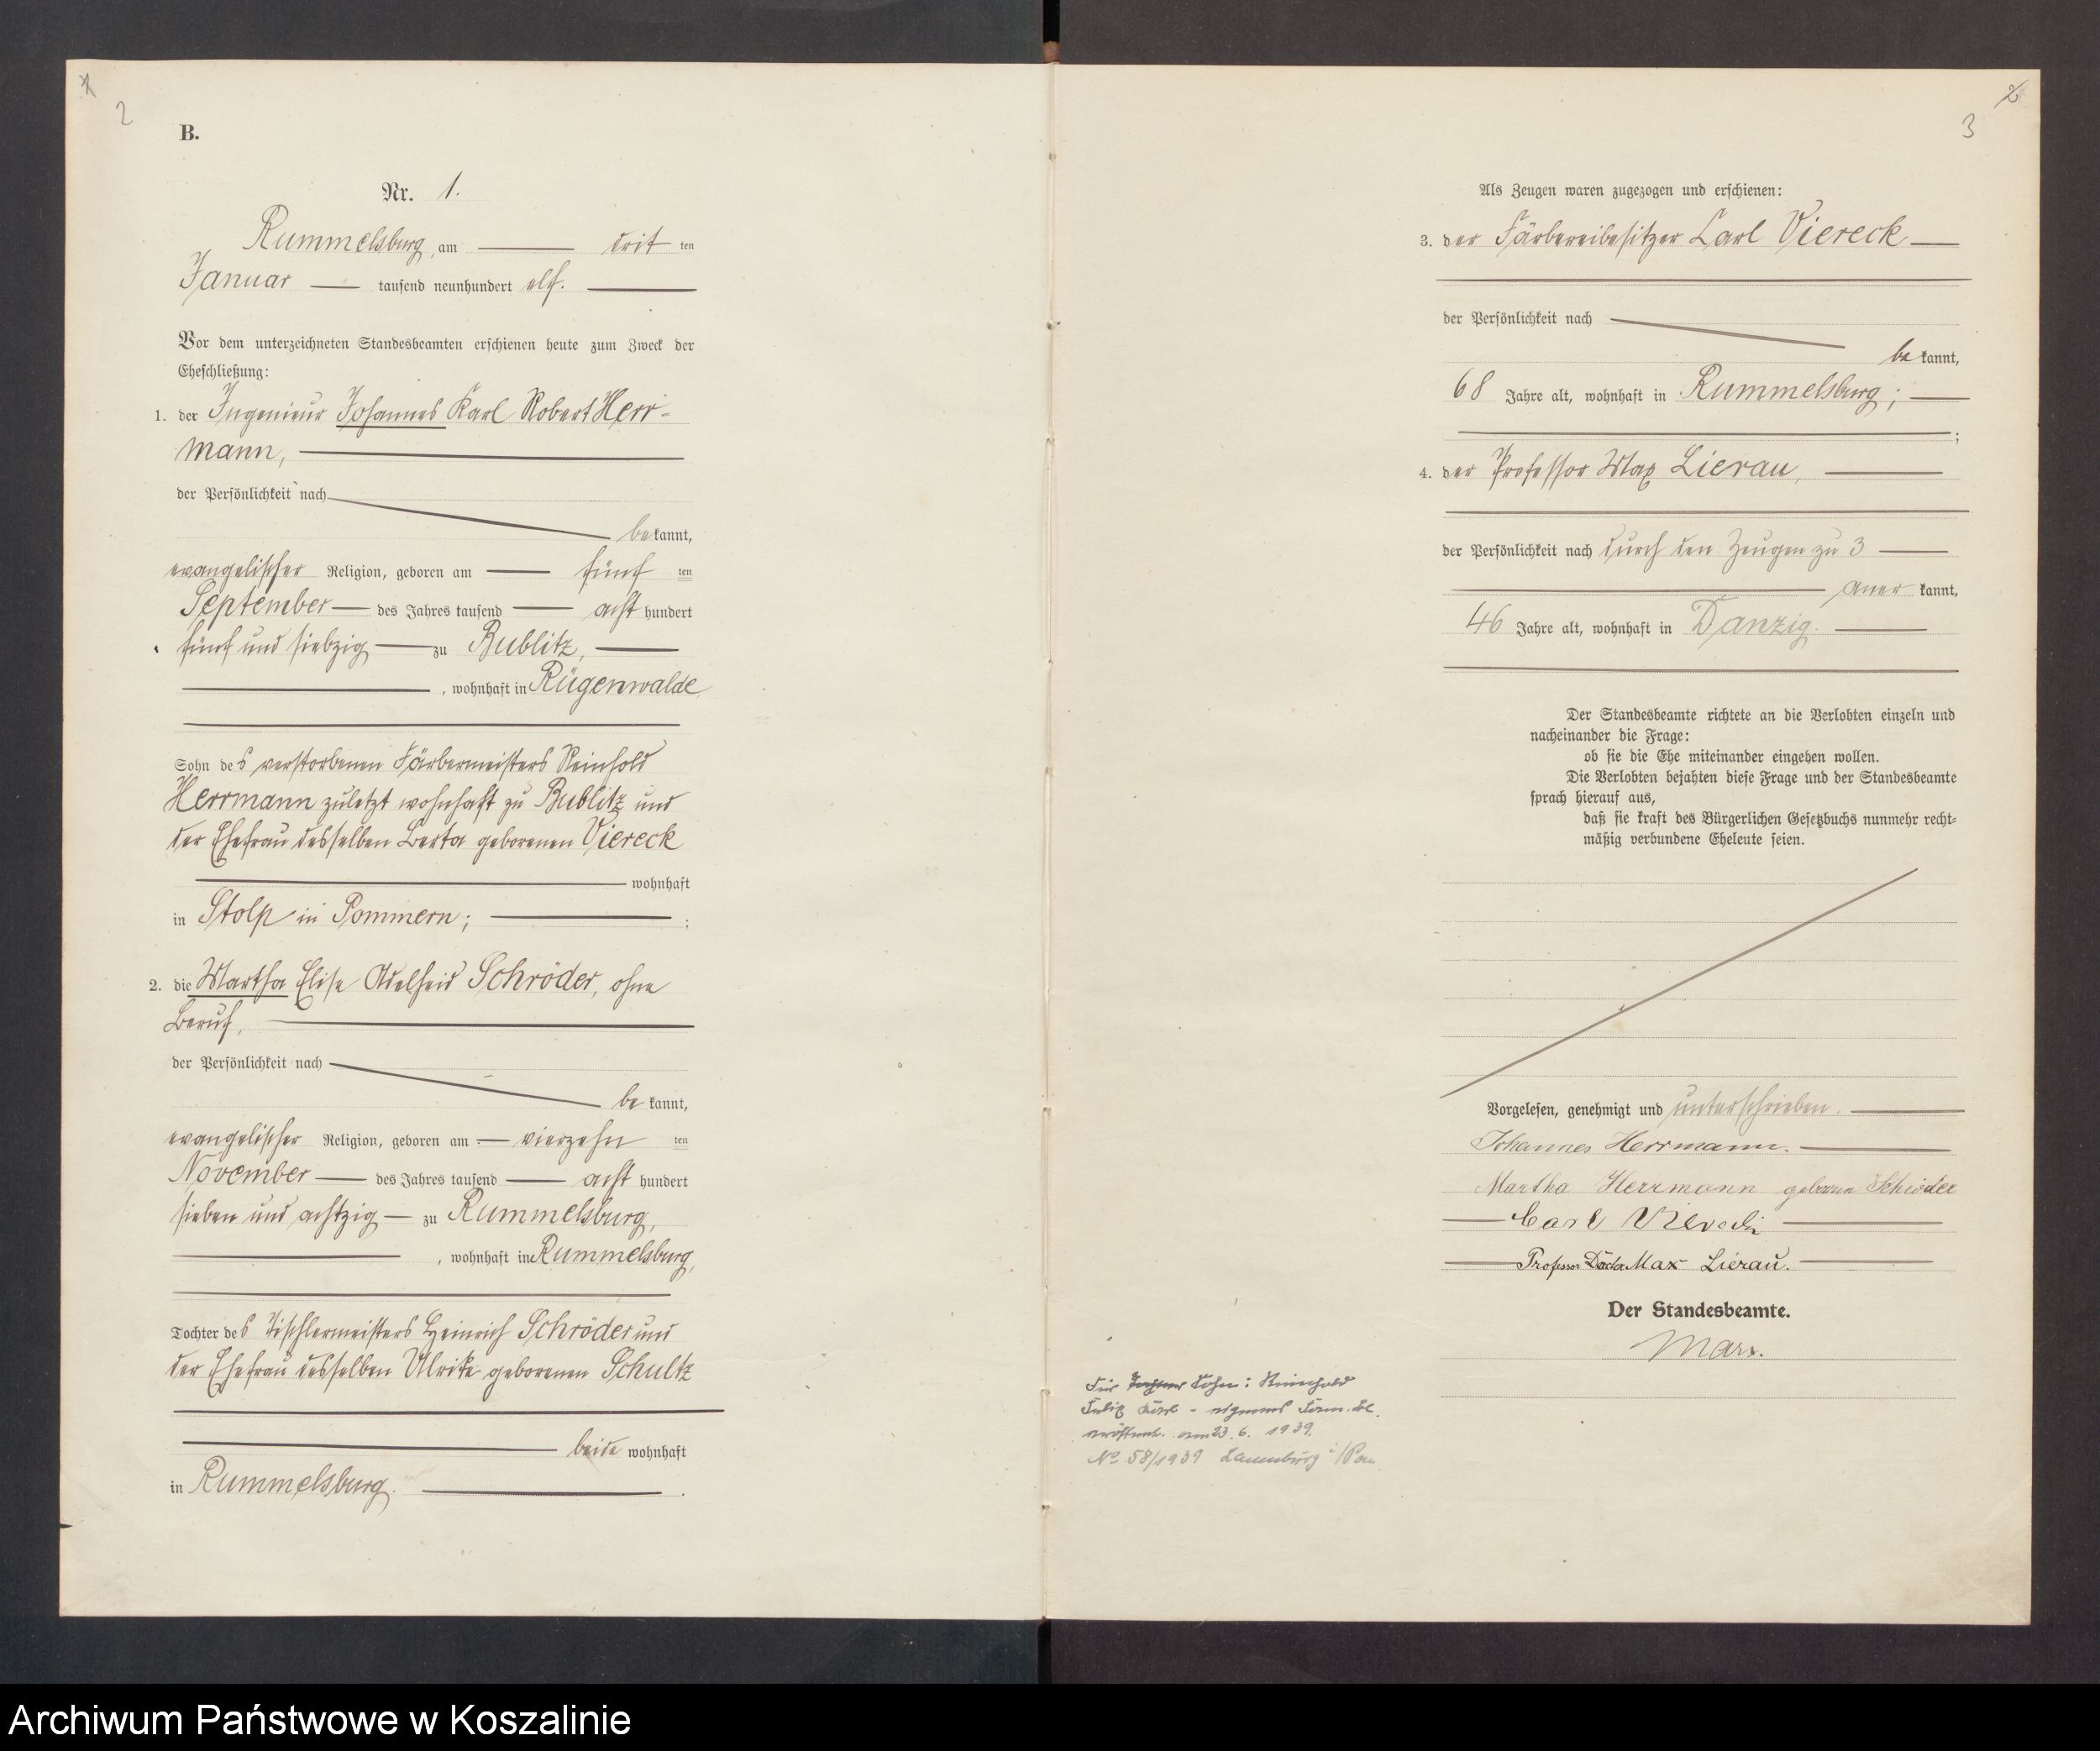 1
2
B.
Nr. 1.
Rummelsburg, am dritten
Januar tausend neunhundert elf.
Vor dem unterzeichneten Standesbeamten erschienen heute zum Zweck der
Eheschließung:
1. der Ingenieur Johannes Karl Robert Herr-
mann,
der Persönlichkeit nach
bekannt,
evangelischer Religion, geboren am fünften
September des Jahres tausend achthundert
fünf und siebzig zu Bublitz,
, wohnhaft in Rügenwalde
Sohn des verstorbenen Färbermeisters Reinhold
Herrmann zuletzt wohnhaft zu Bublitz und
der Ehefrau desselben Berta geborenen Viereck
wohnhaft
in Stolp in Pommern; ;
2. die Martha Elise Adelheid Schröder, ohne
Beruf,
der Persönlichkeit nach
bekannt,
evangelischer Religion, geboren am vierzehnten
November des Jahres tausend achthundert
sieben und achtzig zu Rummelsburg,
, wohnhaft in Rummelsburg,
Tochter des Tischlermeisters Heinrich Schröder und
der Ehefrau desselben Ulrike geborenen Schultz
beide wohnhaft
in Rummelsburg. .
2
3
Als Zeugen waren zugezogen und erschienen:
3. der Färbereibesitzer Carl Viereck
der Persönlichkeit nach
bekannt,
68 Jahre alt, wohnhaft in Rummelsburg;
;
4. der Professor Max Lierau,
der Persönlichkeit nach durch den Zeugen zu 3
anerkannt,
46 Jahre alt, wohnhaft in Danzig.
Der Standesbeamte richtete an die Verlobten einzeln und
nacheinander die Frage:
ob sie die Ehe miteinander eingehen wollen.
Die Verlobten bejahten diese Frage und der Standesbeamte
sprach hierauf aus,
daß sie kraft des Bürgerlichen Gesetzbuchs nunmehr recht-
mäßig verbundene Eheleute seien.
Vorgelesen, genehmigt und unterschrieben.
Johannes Herrmann.
Martha Herrmann geborene Schröder
Carl Viereck
Professor Doctor Max Lierau.
Der Standesbeamte.
Marx.
Für Sohn: Reinhold
am 23. 6. 1939.
No 58/1939 Lauenburg i/Pom
Archiwum Państwowe w Koszalinie